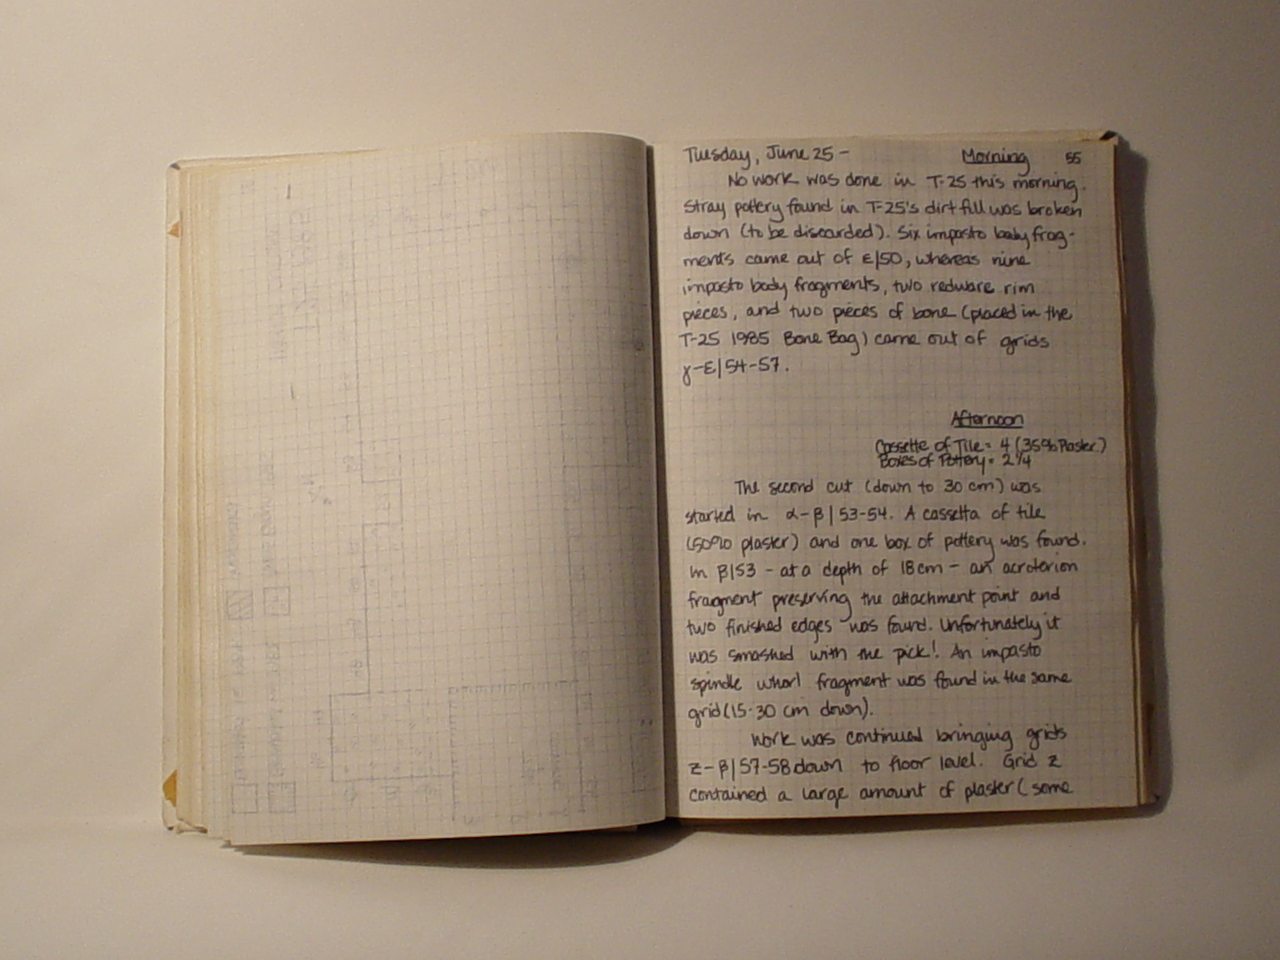 Tuesday, June 25 - Morning 55
No work was done in T-25 this morning.
Stray pottery found in T-25's dirt fill was broken
down (to be discarded). Six impasto body frag-
ments came out of ε/50, whereas nine
impasto body fragments, two redware rim
pieces, and two pieces of bone (placed in the
T-25 1985 Bone Bag) came out of grids
γ-ε/54-57.
Afternoon
Cassette of Tile = 4 (35% Plaster)
Boxes of Pottery = 2 1/4
The second cut (down to 30 cm) was
started in α-β/53-54. A cassetta of tile
(50% plaster) and one box of pottery was found.
In β/53 - at a depth of 18cm - an acroterion
fragment preserving the attachment point and
two finished edges was found. Unfortunately it
was smashed with the pick! An impasto
spindle whorl fragment was found in the same
grid (15-30 cm down).
Work was continued bringing grids
z-β/57-58 down to floor level. Grid z
contained a large amount of plaster (some